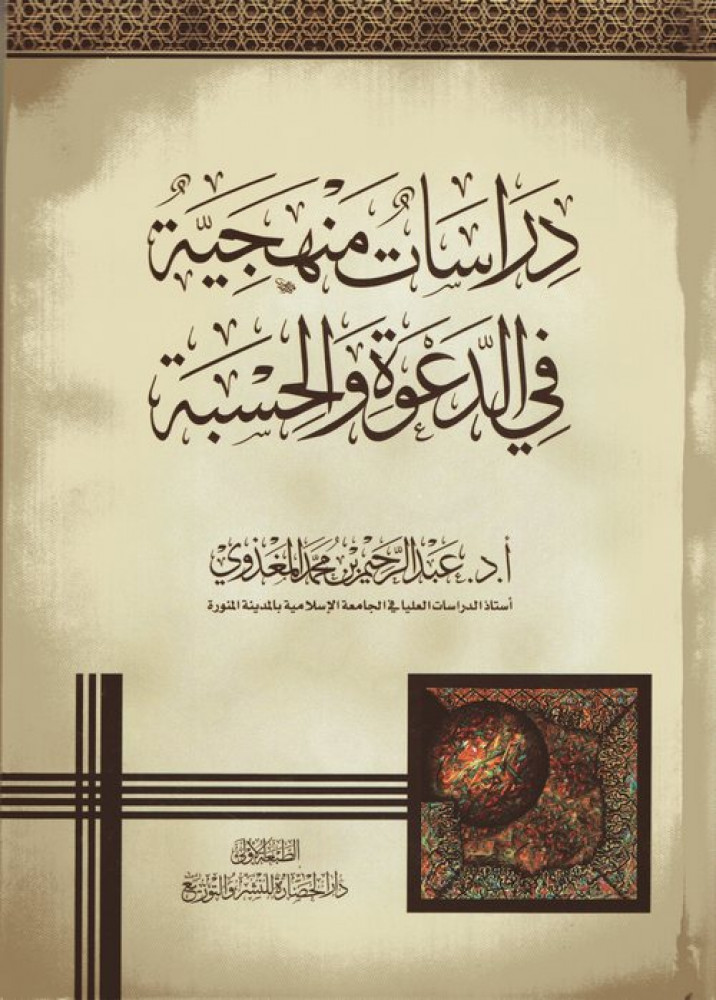 دِرَاسَاتٌ مَنْهَجِيَّةٌ
فِي الدَّعْوَةِ وَالْحِسْبَةِ
أ.د. عَبْدُ الرَّحِيمِ بْنُ مُحَمَّد الْمُغَذَّوِي
أستاذ الدراسات العليا في الجامعة الإسلامية بالمدينة المنورة
الطَّبْعَةُ الأُولَى
دَارُ الْحَضَارَةِ لِلنَّشْرِ وَالتَّوْزِيعِ